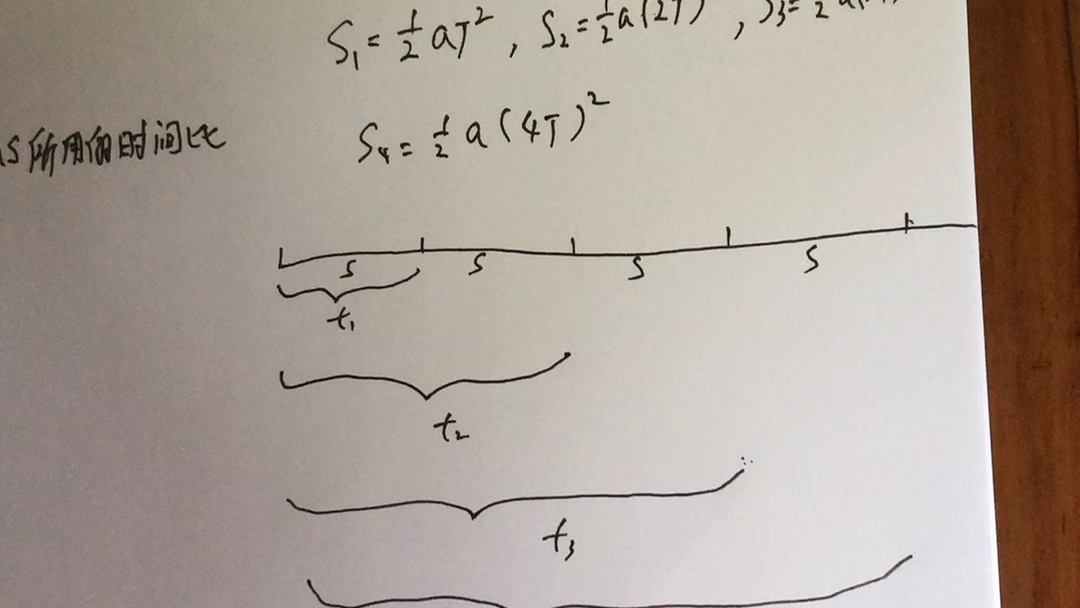 S₁=½aT², S₂=½a(2T)
S所用的时间比
S₄=½a(4T)²
S S S S
t₁
t₂
t₃